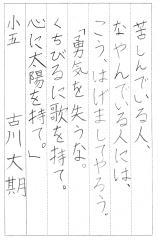 苦しんでいる人、
なやんでいる人には、
こう、はげましてやろう。
「勇気を失うな。
くちびるに歌を持て。
心に太陽を持て。」
小五　古川大期